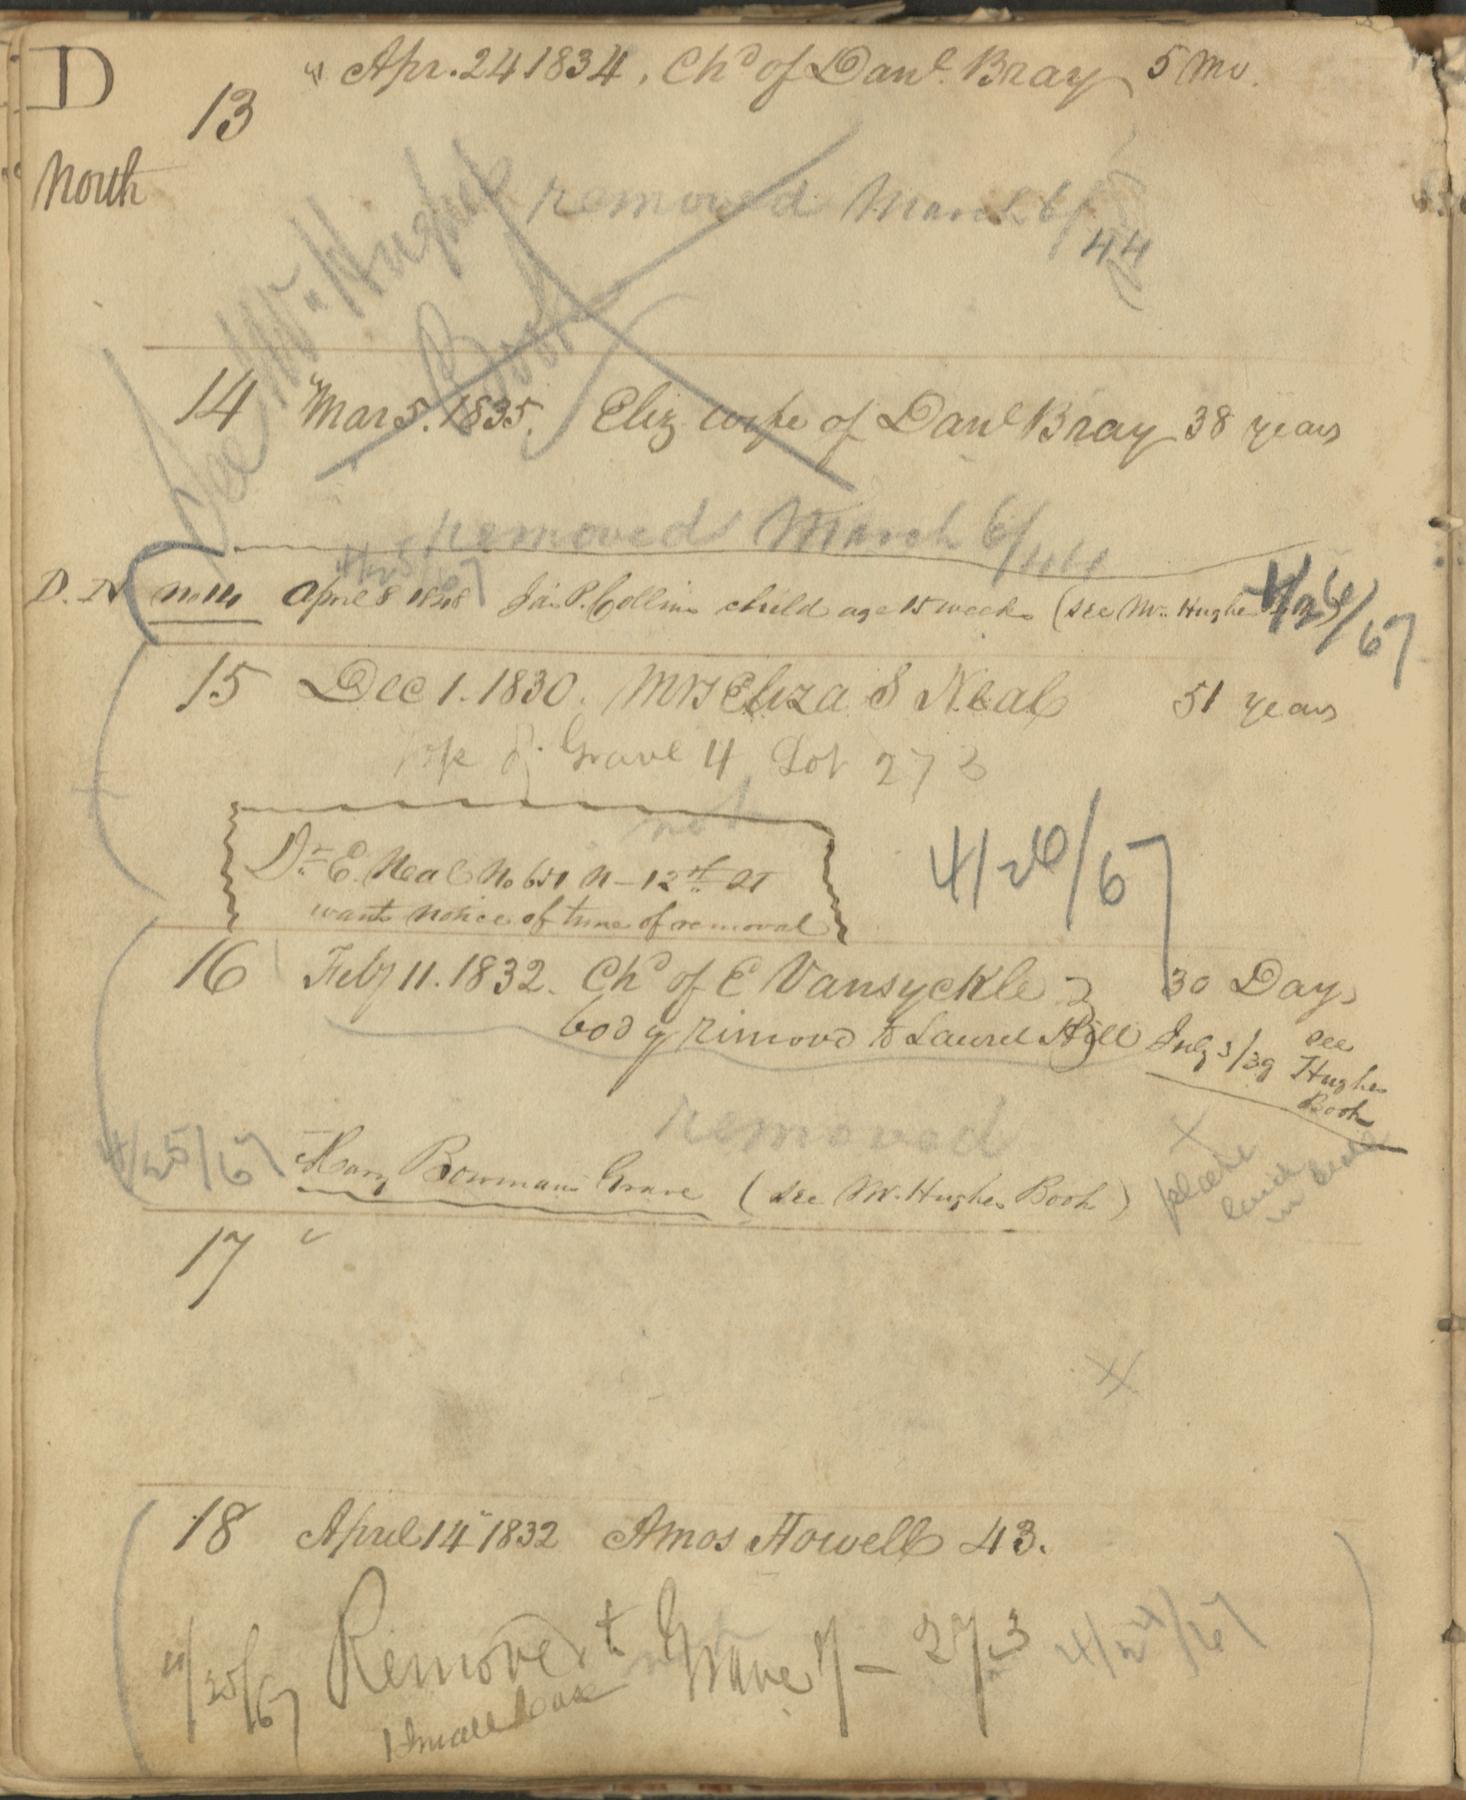 D
North
13 " Apr. 24 1834. Chd of Danl. Bray 5 Mo.
removed March 6/44
See Wm Hughes
Book
14 "Mar 5. 1835. Eliz wife of Danl Bray 38 years
removed March 6/44
4/25/67
D. N No 14 April 8 1848 Jas. P. Collins child age 15 weeks (see Wm Hughes
4/26/67
15 Dec 1. 1830. Mrs Eliza S Neal 51 years
Top of Grave 4 Lot 273
not
Dr E. Neal No 651 N - 12th St
wants notice of time of removal
4/26/67
16 Feby 11. 1832. Chd of E Vansyckle 30 Days
body remove to Laurel Hill July 3/39 see
Hughes
Book
removed
4/25/67 Bowmans Grave (see Wm. Hughes Book)
plate
laid
in
17
18 April 14" 1832 Amos Howell 43.
4/25/67 Removed to Grave 7 - 273 4/24/67
1 Small